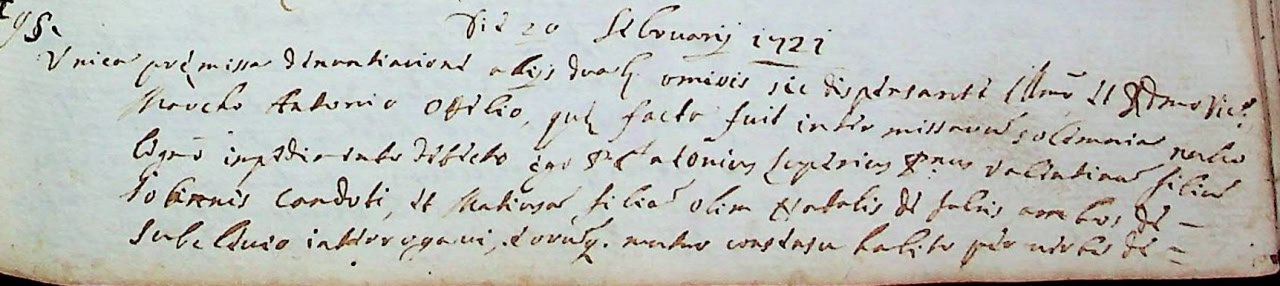 Die 20 Februarij 1721
Unica premissa denuntiatione alijs duabq. omissis sic dispensante Illmo et Rdmo Vic.
Marcho Antonio Ottelio, que facta fuit inter missarum solemnia nullo
legmo inpedimento detecto ego Pr. Antonius Valentinum filium
Joannis Candoti, et Mariusam filiam olim Natalis de ambos de
interrogavi, eorumq. mutuo consensu habito per verba de